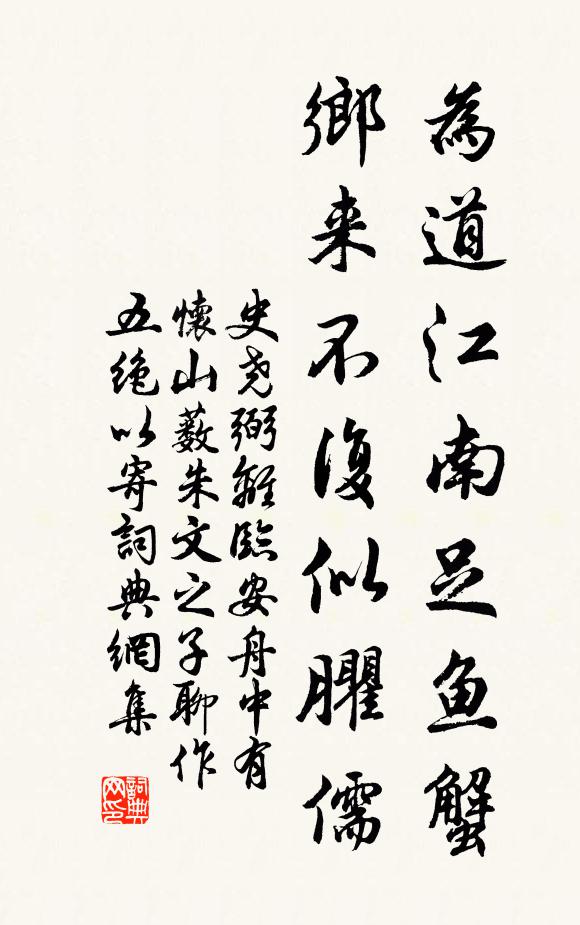 為道江南足鱼蟹
鄉来不復似臞儒
史尧弼離臨安舟中有
懷山薮朱文之子聊作
五绝以寄詞典網集
詞典网印